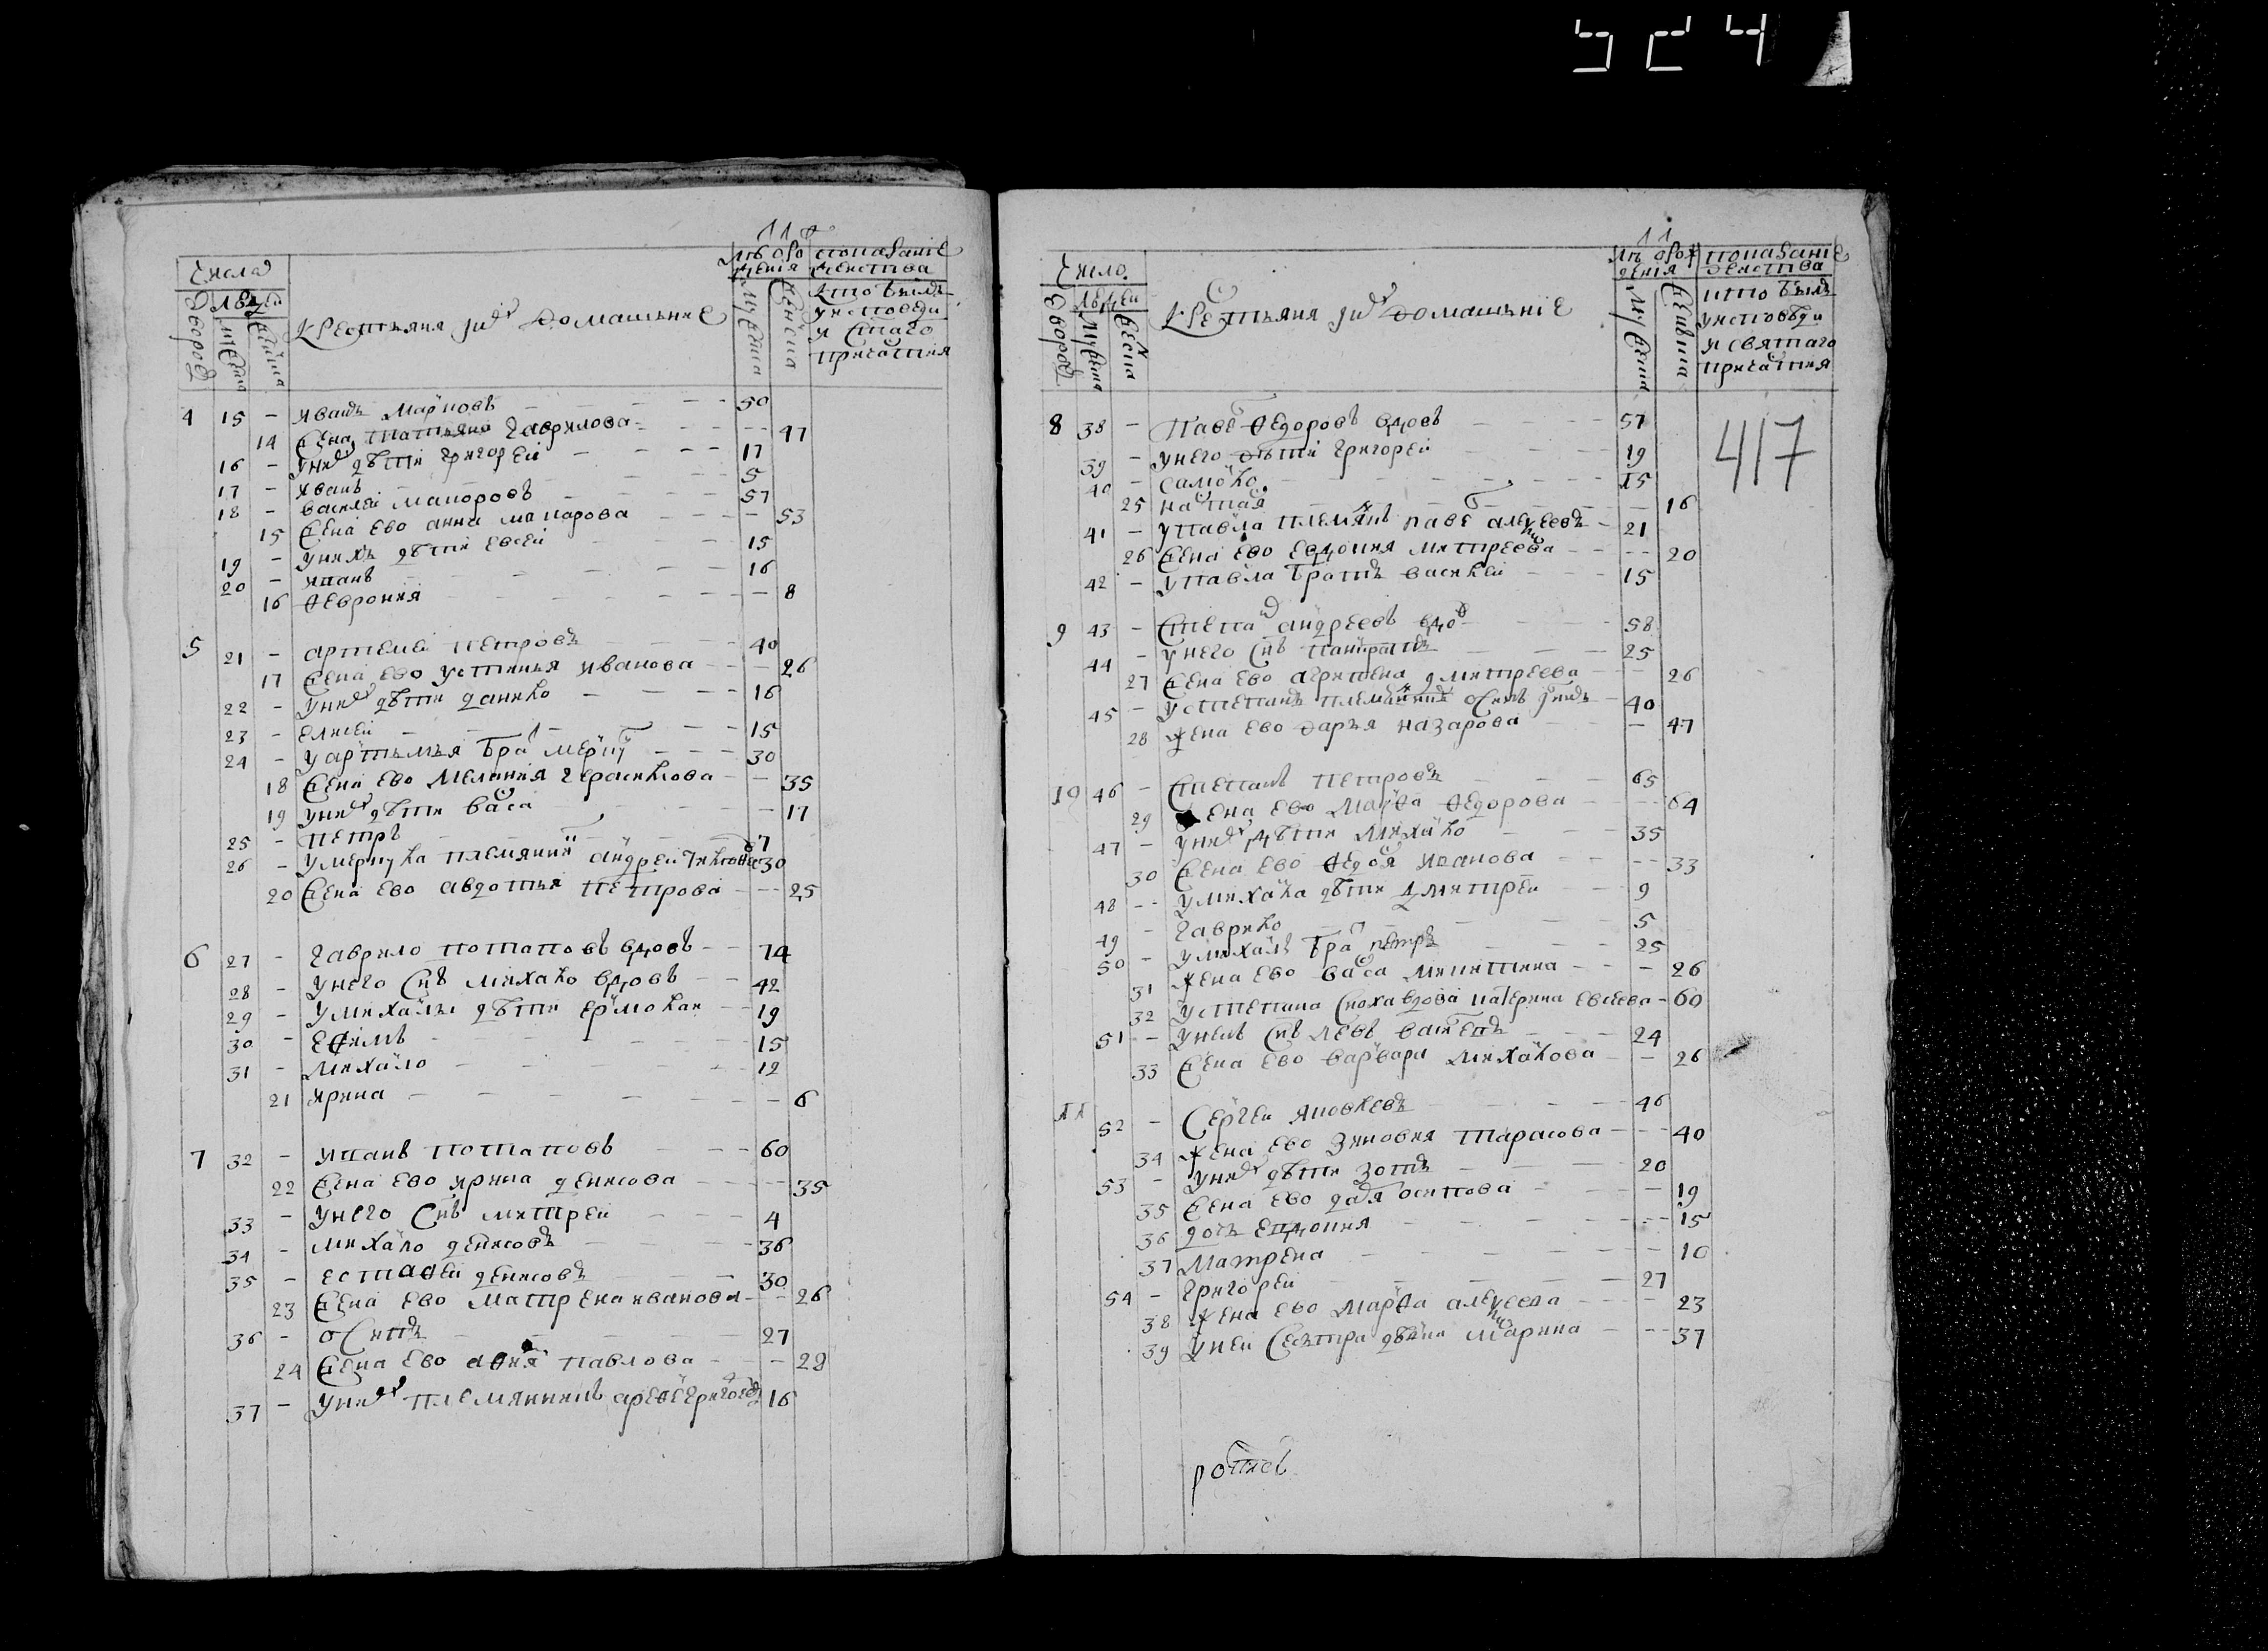 524
Числа
Лѣ оро
ждения
показание
действа
дворов
людей
мужеска
женска
крестьяня и их домашние
мужеска
женска
кто был
у исповеди
и стаго
причастия
4 15 - Иванъ Марковъ - 50
14 Жена Татьяна Гаврилова - 47
16 - у них дѣти Григорей - 17
17 - Иванъ - 5
18 - Василей Макаровъ - 57
15 Жена ево Анна Макарова - 53
19 - у нихъ дѣти Евсей - 15
20 - Иванъ - 16
16 Ѳеврония - 8
5 21 - Артемей Петровъ - 40
17 Жена ево Устинья Иванова - 26
22 - у них дѣти Данило - 16
23 - Елисей - 15
24 - у Артемья бра Меркул - 30
18 Жена ево Мелания Герасимова - 35
19 у них дѣти Васа - 17
25 - Петръ - 7
26 - у Меркула племянник Андрей - 30
20 Жена ево Авдотья Петрова - 25
6 27 - Гаврило Потаповъ вдовъ - 74
28 - у него снъ Михаило вдовъ - 42
29 - у Михаилы дѣти Ермолаи - 19
30 - Еѳимъ - 15
31 - Михаило - 12
21 Ирина - 6
7 32 - Иванъ Потаповъ - 60
22 Жена ево Ирина Денисова - 35
33 - у него снъ Митрей - 4
34 - Михаило Денисовъ - 36
35 - Естаѳей Денисовъ - 30
23 Жена ево Матрена Иванова - 26
36 - Осипъ - 27
24 Жена ево Аѳия Павлова - 28
37 - у них племянникъ Ареѳе Григорев - 16
11
Число
Лѣ орож
дения
показание
действа
дворов
людей
мужеска
женска
Крестьяня и их домашние
мужеска
женска
кто былъ
у исповѣди
и святаго
причастия
417
8 38 - Паве Ѳедоровъ вдовъ - 57
39 - у него дѣти Григорей - 19
40 - Само&#1110;ло - 15
25 Настая - 16
41 - у Павла племян Паве Алексеевъ - 21
26 Жена ево Евдокия Митреева - 20
42 - у Павла братъ Василей - 15
9 43 - Степан Андреевъ вдо - 58
44 - у него снъ Панкратъ - 25
27 Жена ево Агрипена Дмитреева - 26
45 - у Степана племянник Осипъ - 40
28 Жена ево Дарья Назарова - 47
10 46 - Степанъ Петровъ - 65
29 Жена ево Марѳа Ѳедорова - 64
47 - у них дѣти Михаило - 35
30 Жена ево Ѳедося Иванова - 33
48 - у Михаила дѣти Дмитрей - 9
49 - Гаврило - 5
50 - у Михаилъ бра Петръ - 25
31 Жена ево Васа Микитина - 26
32 у Степана сноха вдова Катерина Евсеева - 60
51 - у нея снъ Левъ - 24
33 Жена ево Варвара Михаилова - 26
11 52 - Сергей Яковлевъ - 46
34 Жена ево Зиновия Тарасова - 40
53 - у них дѣти Зотъ - 20
35 Жена ево Дая Осипова - 19
36 дочь Евдокия - 15
37 Матрена - 10
54 - Григорей - 27
38 Жена ево Марѳа Алексеева - 23
39 у ней сестра девка Марина - 37